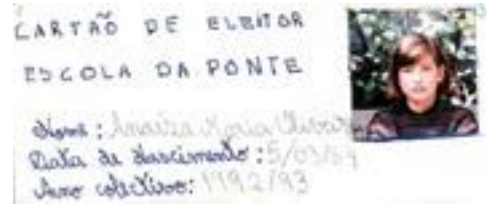 CARTÃO DE ELEITOR
ESCOLA DA PONTE
Nome: Maria Oliveira
Data de Nascimento: 5/03/84
Ano colectivo: 1992/93